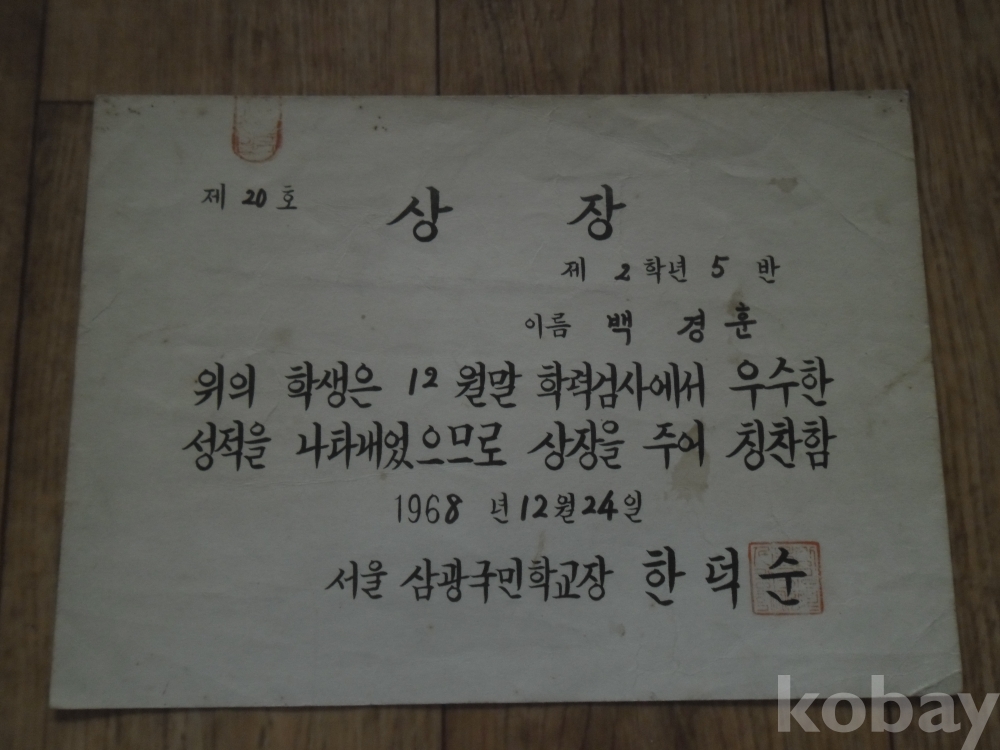 제 20 호
상 장
제 2 학년 5 반
이름 백 경 훈
위의 학생은 12 월말 학력검사에서 우수한
성적을 나타내었으므로 상장을 주어 칭찬함
1968 년 12월 24일
서울 삼광국민학교장 한 덕 순
kobay